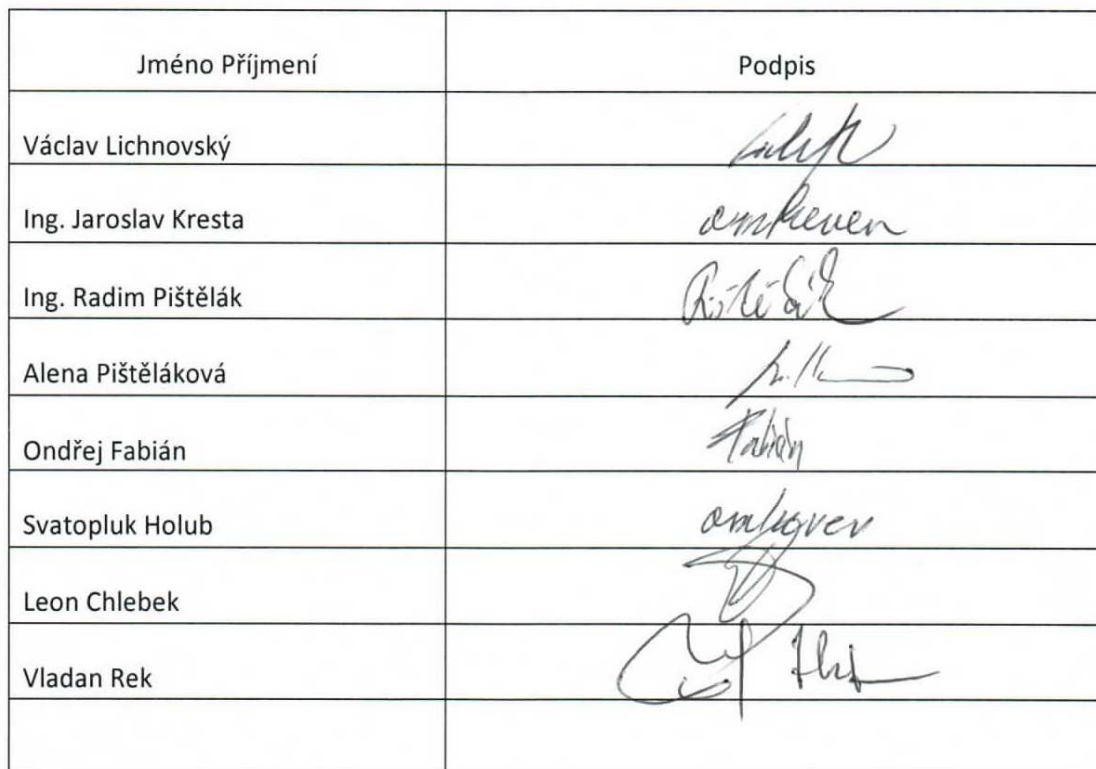 Jméno Příjmení Podpis
Václav Lichnovský
Ing. Jaroslav Kresta omluven
Ing. Radim Pištělák
Alena Pištěláková
Ondřej Fabián Fabián
Svatopluk Holub omluven
Leon Chlebek
Vladan Rek